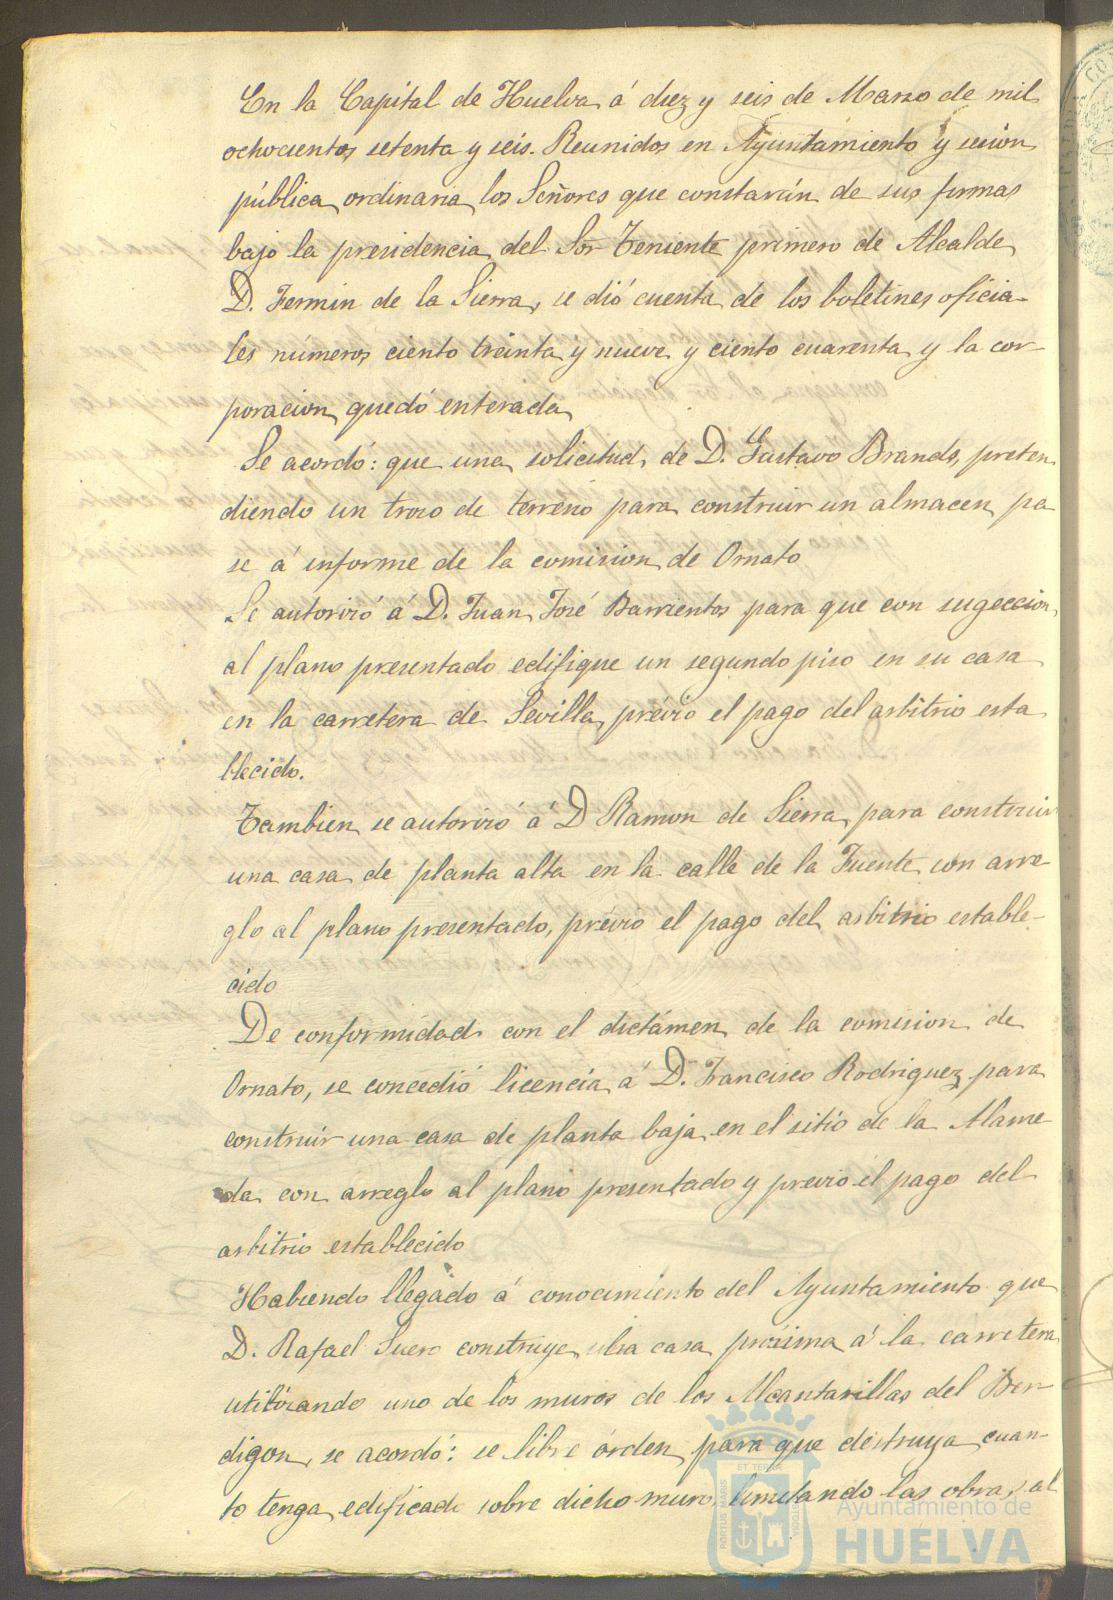 En la Capital de Huelva á diez y seis de Marzo de mil
ochocientos setenta y seis. Reunidos en Ayuntamiento y sesion
pública ordinaria los Señores que constarán de sus firmas
bajo la presidencia del Sor Teniente primero de Alcalde
D. Fermin de la Sierra, se dió cuenta de los boletines oficia-
les números ciento treinta y nueve y ciento cuarenta y la cor-
poracion quedó enterada
Se acordó: que una solicitud de D. Gustavo Brands, preten
diendo un trozo de terreno para construir un almacen, pa
se á informe de la comision de Ornato
Se autorizó á D. Juan José Barrientos para que con sugeccion
al plano presentado edifique un segundo piso en su casa
en la carretera de Sevilla, prévio el pago del arbitrio esta
blecido.
Tambien se autorizó á D Ramon de Sierra, para construir
una casa de planta alta en la calle de la Fuente con arre-
glo al plano presentado, prévio el pago del arbitrio estable-
cido
De conformidad con el dictámen de la comision de
Ornato, se concedió licencia á D. Francisco Rodriguez para
construir una casa de planta baja en el sitio de la Alame
da con arreglo al plano presentado y previo el pago del
arbitrio establecido
Habiendo llegado á conocimiento del Ayuntamiento que
D. Rafael Suero construye una casa próxima á la carretera
utilizando uno de los muros de los Alcantarillas del Ber-
digon, se acordó: se libre órden para que destruya cuan-
to tenga edificado sobre dicho muro, limitando las obras al
ET TERRAE
PORTUS MARIS
CUSTODIA
Ayuntamiento de
HUELVA